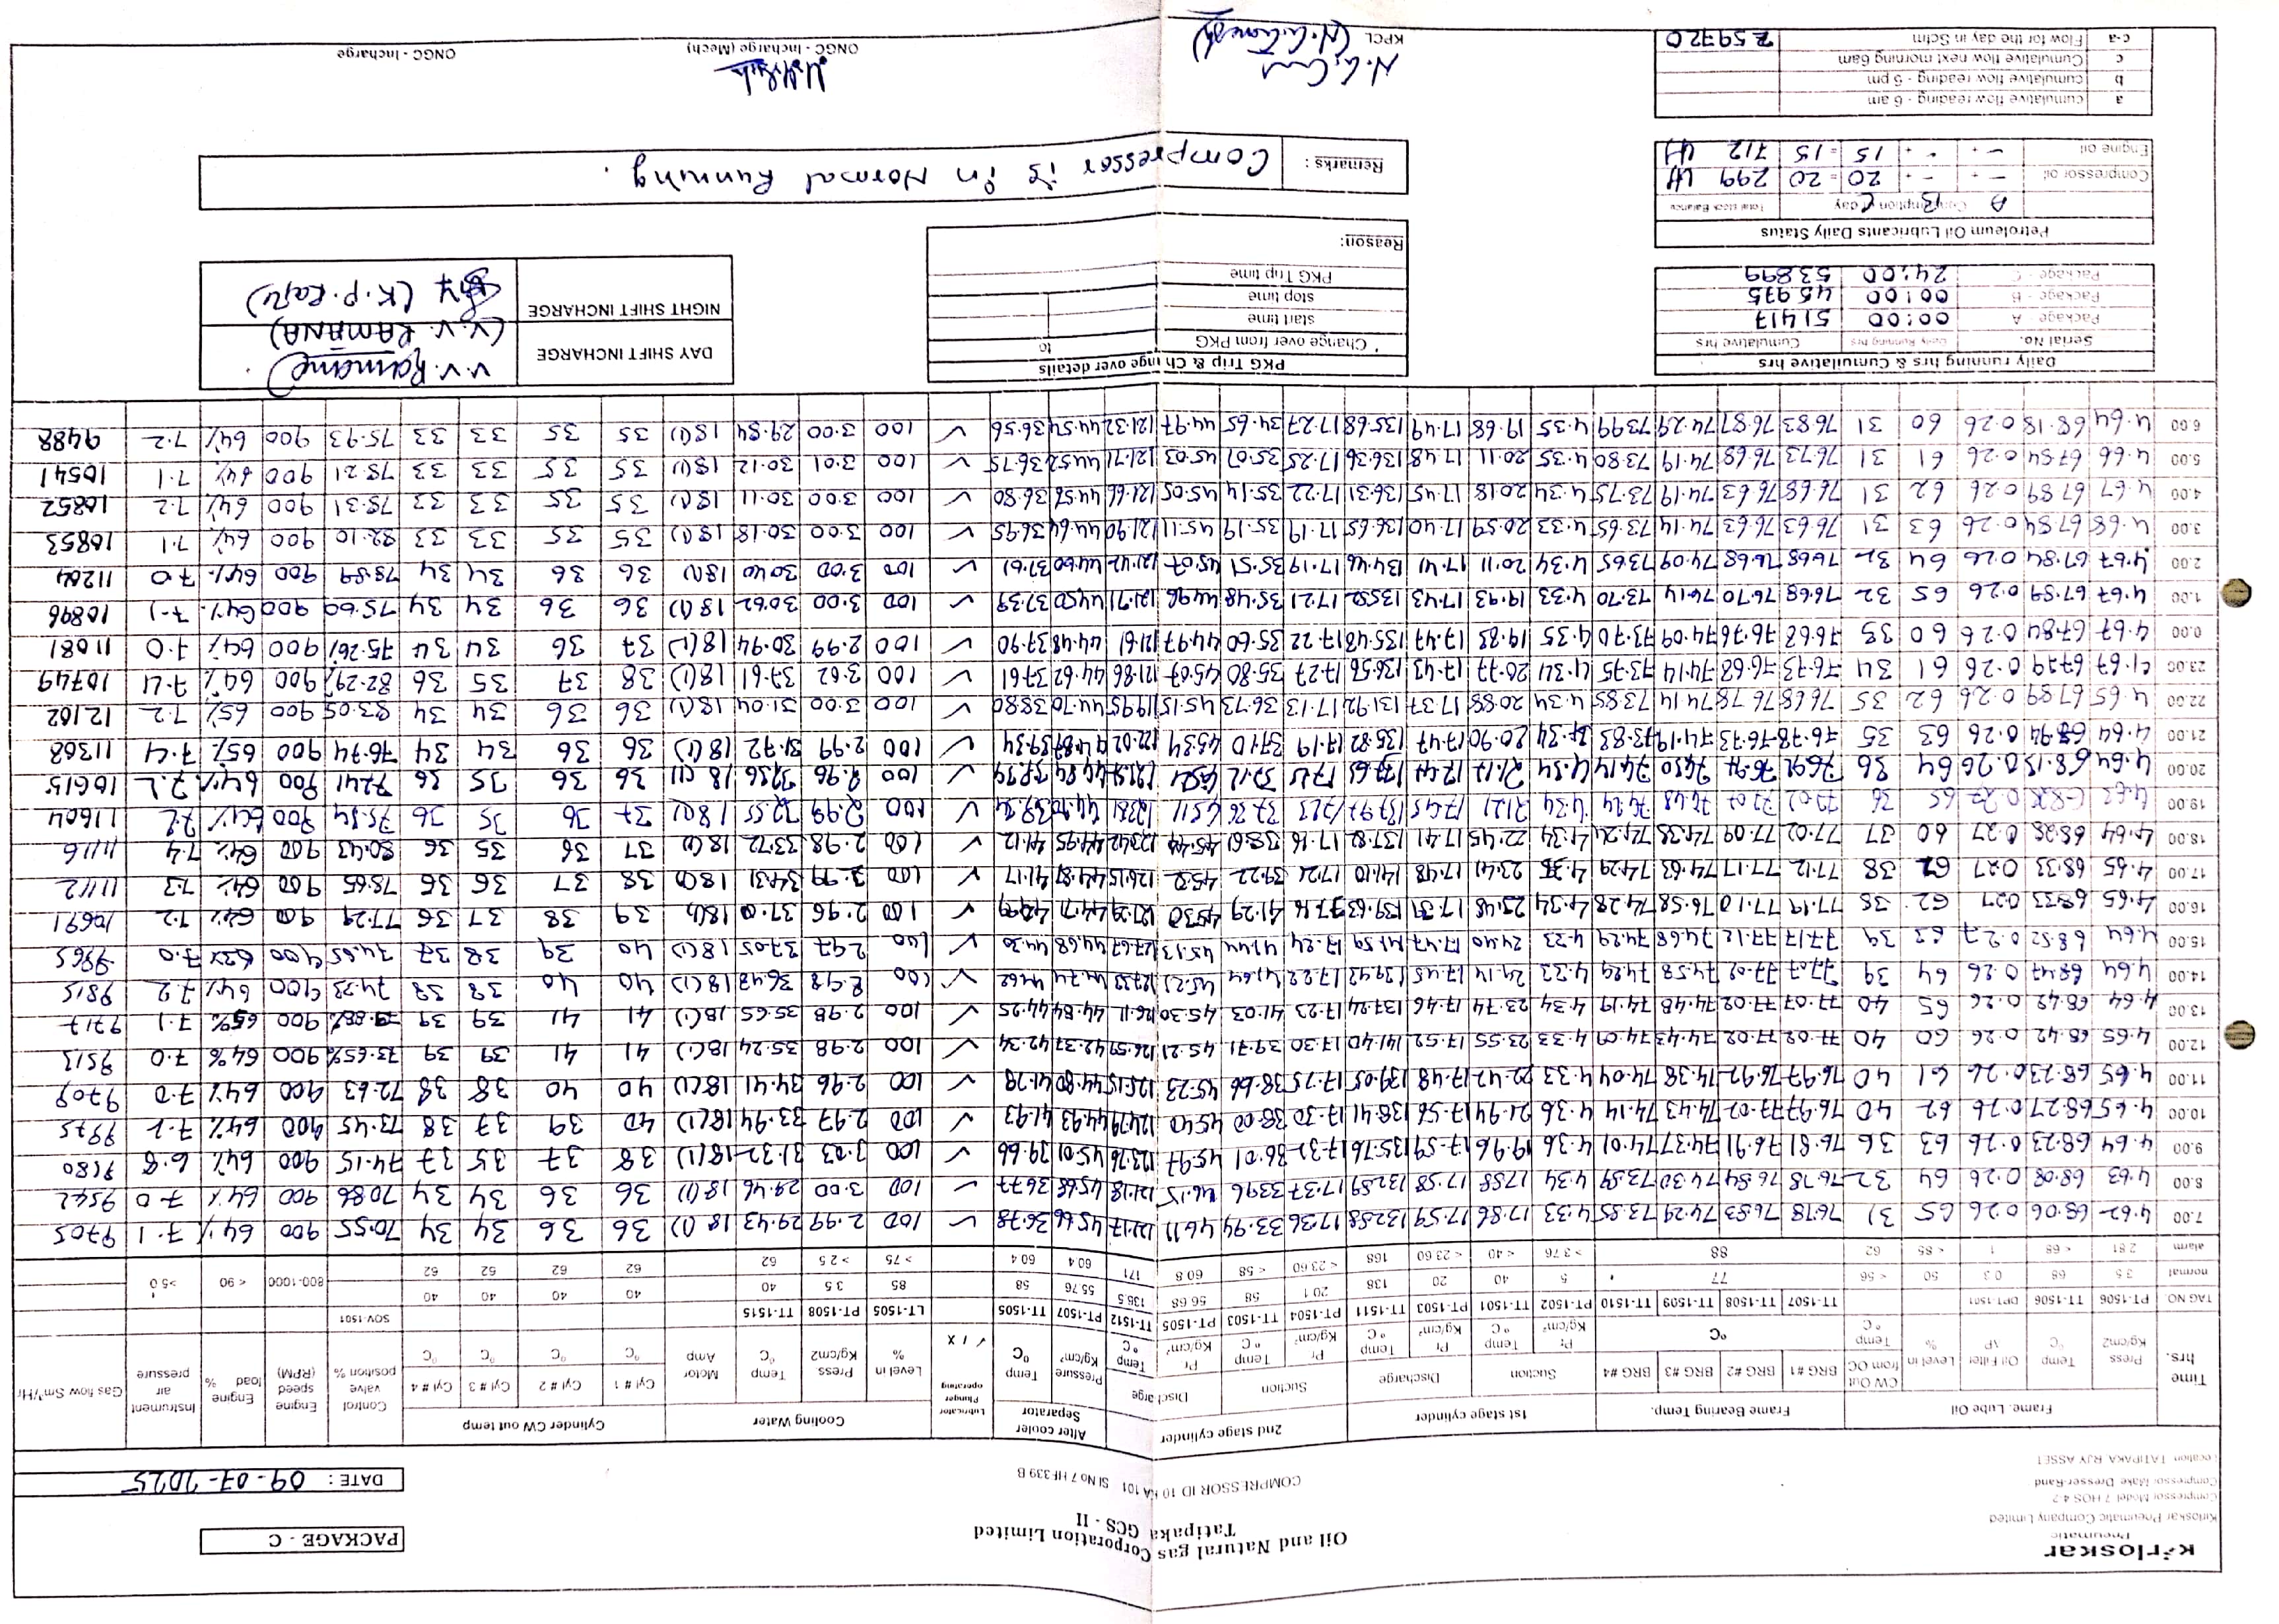 Kirloskar
Pneumatic
Kirloskar Pneumatic Company Limited
Compressor Model 7 HOS 4 2
Compressor Make Dresser-Rand
Location TATIPAKA, RJY ASSET
Oil and Natural gas Corporation Limited
Tatipaka GCS - II
COMPRESSOR ID 10 KA 101 Sl No 7 HF 339 B
PACKAGE - C
DATE : 09-07-2025
Time hrs. Frame. Lube Oil Frame Bearing Temp. 1st stage cylinder 2nd stage cylinder After cooler Separator Lubricator Plunger operating Cooling Water Cylinder CW out temp Control valve position % Engine speed (RPM) Engine load % Instrument air pressure Gas flow Sm³/Hr
Press Kg/cm2 Temp °C Oil Filter Level in % CW Out from OC Temp °C BRG #1 BRG #2 BRG #3 BRG #4 °C Suction Discharge Suction Discharge Pressure Kg/cm² Temp °C ✓ / X Level in % Press Kg/cm2 Temp °C Motor Amp Cyl # 1 °C Cyl # 2 °C Cyl # 3 °C Cyl # 4 °C
TAG NO. PT-1506 TT-1506 DPT-1501 TT-1507 TT-1508 TT-1509 TT-1510 PT-1502 TT-1501 PT-1503 TT-1511 PT-1504 TT-1503 PT-1505 TT-1512 PT-1507 TT-1505 LT-1505 PT-1508 TT-1515 SOV-1501
normal 3.5 68 0.3 50 < 56 77 5 40 20 138 20.1 58 56.68 138.5 55.76 58 85 3.5 40 40 40 40 40 800-1000 < 90 >5.0
alarm 2.81 < 68 1 < 85 62 88 > 3.76 < 40 < 23.60 168 < 23.60 < 58 60.8 171 60.4 60.4 > 75 > 2.5 62 62 62 62 62
7.00 4.62 68.06 0.26 65 31 76.78 76.83 74.29 73.85 4.33 17.86 17.59 132.88 17.36 33.94 46.11 121.17 45.66 36.78 ✓ 100 2.99 29.43 18(1) 36 36 34 34 70.55 900 64% 7.1 9705
8.00 4.63 68.08 0.26 64 32 76.78 76.84 74.30 73.89 4.34 17.88 17.58 132.89 17.37 33.96 46.15 121.18 45.68 36.77 ✓ 100 3.00 29.46 18(1) 36 36 34 34 70.86 900 64% 7.0 9542
9.00 4.64 68.23 0.26 63 36 76.81 76.91 74.37 74.01 4.36 19.96 17.59 135.76 17.32 36.01 45.97 123.76 45.01 39.66 ✓ 100 3.03 31.32 18(1) 38 37 35 37 74.15 900 64% 6.8 9180
10.00 4.65 68.27 0.26 62 40 76.97 77.02 74.43 74.14 4.36 21.94 17.56 138.41 17.30 38.00 45.40 124.79 44.93 41.93 ✓ 100 2.97 33.94 18(1) 40 39 37 38 73.45 900 64% 7.2 9975
11.00 4.65 68.23 0.26 61 40 76.97 76.92 74.38 74.04 4.33 22.42 17.48 139.05 17.25 38.66 45.23 125.15 44.80 41.28 ✓ 100 2.96 34.41 18(1) 40 40 38 38 72.63 900 64% 7.0 9709
12.00 4.65 68.42 0.26 60 40 77.02 77.02 74.43 74.09 4.33 23.55 17.52 141.40 17.30 39.71 45.21 126.59 42.37 42.34 ✓ 100 2.98 35.24 18(1) 41 41 39 39 73.65% 900 64% 7.0 9513
13.00 4.64 68.42 0.26 65 40 77.07 77.02 74.48 74.19 4.34 23.74 17.46 137.24 17.23 41.03 45.30 126.11 44.84 44.25 ✓ 100 2.98 35.65 18(1) 41 41 39 39 900 65% 7.1 9717
14.00 4.64 68.47 0.26 64 39 77.07 77.02 74.58 74.29 4.33 24.14 17.45 139.42 17.22 41.64 45.21 127.33 44.74 44.62 ✓ 100 2.98 36.43 18(1) 40 40 38 38 74.23 900 64% 7.2 9815
15.00 4.64 68.52 0.27 63 39 77.17 77.12 74.68 74.29 4.33 24.40 17.47 141.59 17.24 41.44 45.13 127.67 44.68 44.30 ✓ 100 2.97 37.05 18(1) 40 39 38 37 74.65 900 63% 7.0 9965
16.00 4.65 68.33 0.27 62 38 77.19 77.17 76.58 74.28 4.34 23.48 17.39 139.63 17.16 41.29 45.30 127.29 44.71 42.99 ✓ 100 2.96 37.01 18(1) 39 38 37 36 77.29 900 64% 7.2 10691
17.00 4.65 68.33 0.27 62 38 77.12 77.17 74.63 74.29 4.35 23.41 17.48 141.10 17.24 39.22 45.32 126.15 44.87 41.17 ✓ 100 2.99 34.31 18(1) 38 37 36 36 78.65 900 64% 7.3 11112
18.00 4.64 68.28 0.27 60 37 77.02 77.09 74.38 74.24 4.34 22.45 17.41 137.82 17.16 38.61 45.44 123.42 44.95 41.12 ✓ 100 2.98 33.72 18(1) 37 36 35 36 80.43 900 64% 7.4 11116
19.00 4.63 0.27 65 36 77.02 77.02 74.48 74.24 4.34 21.21 17.45 137.97 17.23 37.76 45.11 ✓ 100 2.99 32.55 18(1) 37 36 35 36 75.84 900 64% 7.2 11604
20.00 4.64 68.15 0.26 64 36 76.92 76.97 74.50 74.14 4.34 21.17 17.42 137.63 17.15 37.12 ✓ 100 2.96 32.56 18(1) 36 36 35 36 72.41 900 64% 7.2 10615
21.00 4.64 68.94 0.26 63 35 76.78 76.73 74.19 73.83 4.34 20.90 17.47 135.82 17.19 37.10 45.34 122.02 44.87 39.34 ✓ 100 2.99 31.72 18(1) 36 36 34 34 76.74 900 65% 7.4 11368
22.00 4.65 67.89 0.26 62 35 76.68 76.78 74.14 73.85 4.34 20.88 17.37 131.92 17.13 36.73 45.15 119.95 44.70 38.80 ✓ 100 3.00 31.04 18(1) 36 36 34 34 83.05 900 65% 7.2 12102
23.00 4.67 67.79 0.26 61 34 76.73 76.68 74.14 73.75 4.34 20.77 17.43 136.56 17.27 35.80 45.07 121.86 44.62 37.61 ✓ 100 3.62 37.61 18(1) 38 37 35 36 82.29% 900 64% 7.4 10749
0.00 4.67 67.84 0.26 60 33 76.68 76.76 74.09 73.70 4.35 19.83 17.47 135.43 17.22 35.60 44.97 121.61 44.48 37.90 ✓ 100 2.99 30.94 18(1) 37 36 34 34 75.26% 900 64% 7.0 11081
1.00 4.67 67.89 0.26 65 32 76.68 76.70 74.14 73.70 4.33 19.93 17.43 135.52 17.21 35.48 44.96 121.71 44.50 37.39 ✓ 100 3.00 30.62 18(1) 36 36 34 34 75.60 900 64% 7.1 10896
2.00 4.67 67.84 0.26 64 32 76.68 76.68 74.09 73.65 4.34 20.11 17.41 134.46 17.19 35.51 45.07 121.42 44.60 37.61 ✓ 100 3.00 30.40 18(1) 36 36 34 34 78.89 900 64% 7.0 11204
3.00 4.68 67.84 0.26 63 31 76.63 76.63 74.14 73.65 4.33 20.59 17.40 136.65 17.19 35.19 45.11 121.90 44.64 36.95 ✓ 100 3.00 30.18 18(1) 35 35 33 33 82.10 900 64% 7.1 10853
4.00 4.67 67.89 0.26 62 31 76.68 76.63 74.19 73.75 4.34 20.18 17.45 136.31 17.22 35.14 45.05 121.66 44.56 36.80 ✓ 100 3.00 30.11 18(1) 35 35 33 33 78.31 900 64% 7.2 10852
5.00 4.66 67.84 0.26 61 31 76.73 76.68 74.19 73.80 4.35 20.11 17.48 136.36 17.25 35.07 45.03 121.71 44.52 36.75 ✓ 100 3.01 30.12 18(1) 35 35 33 33 78.21 900 64% 7.1 10541
6.00 4.64 68.18 0.26 60 31 76.83 76.87 74.29 73.99 4.35 19.68 17.49 135.68 17.27 34.65 44.97 121.32 44.54 36.56 ✓ 100 3.00 29.84 18(1) 35 35 33 33 75.93 900 64% 7.2 9488
Daily running hrs & Cumulative hrs
Serial No. Daily Running hrs Cumulative hrs
Package - A 00:00 51417
Package - B 00:00 45975
Package - C 24:00 53899
PKG Trip & Change over details
Change over from PKG to
start time
stop time
PKG Trip time
Reason:
DAY SHIFT INCHARGE V.V. Ramana (V.V. RAMANA)
NIGHT SHIFT INCHARGE (K.P. Raju)
Petroleum Oil Lubricants Daily Status
A B C Consumption / day Total stock Balance
Compressor oil - + - + 20 = 20 299
Engine oil - + - + 15 = 15 712
Remarks : Compressor is in Normal Running.
a cumulative flow reading - 6 am
b cumulative flow reading - 5 pm
c Cumulative flow next morning 6am
c-a Flow for the day in Scm 259720
KPCL
ONGC - Incharge (Mech)
ONGC - Incharge